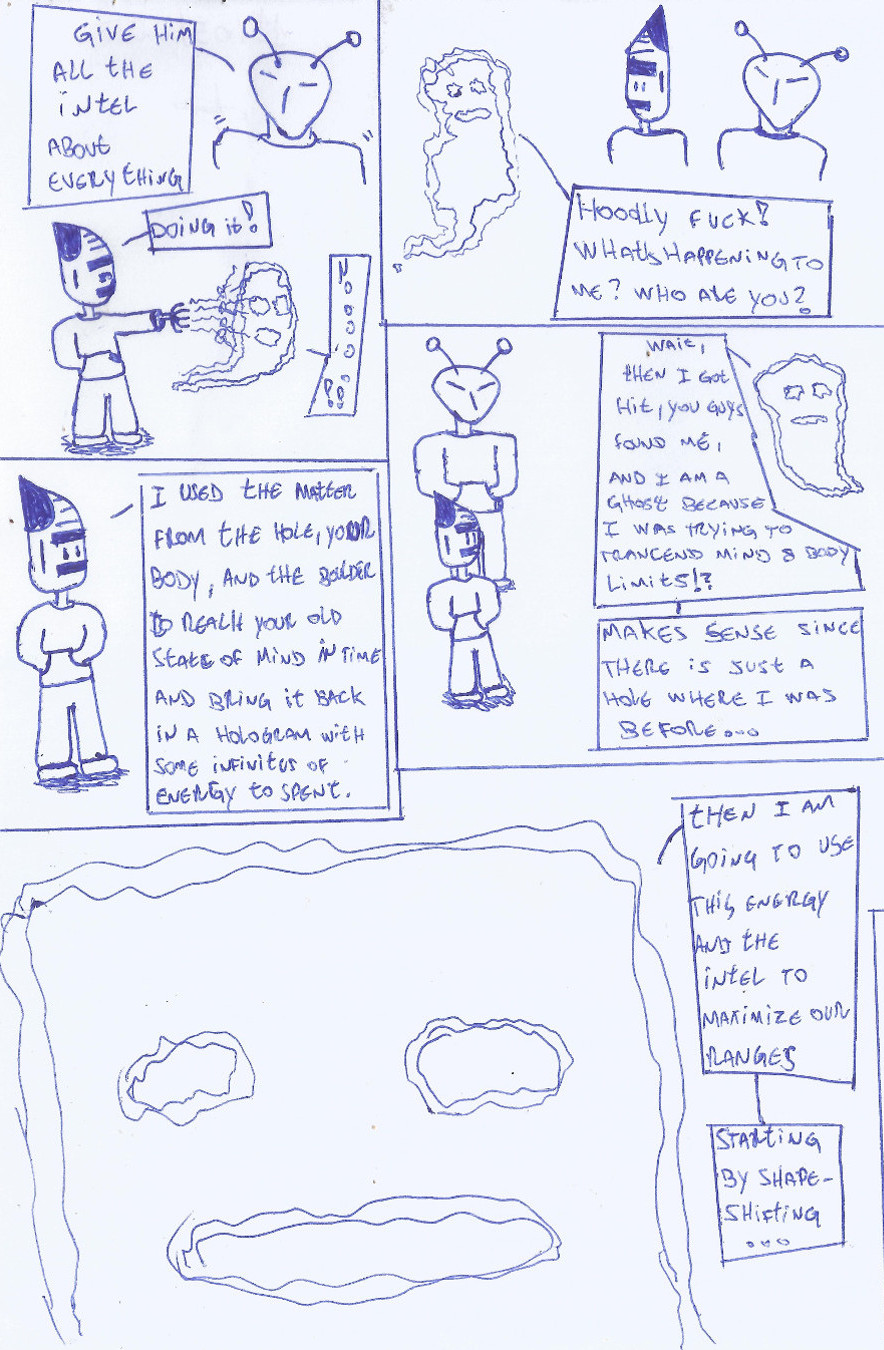 GIVE HIM
ALL THE
INTEL
ABOUT
EVERYTHING
DOING IT!
N
O
O
O
O
O
!?!
HOODLY FUCK!
WHATS HAPPENING TO
ME? WHO ARE YOU?
WAIT,
THEN I GOT
HIT, YOU GUYS
FOUND ME,
AND I AM A
GHOST BECAUSE
I WAS TRYING TO
TRANCEND MIND & BODY
LIMITS!?
MAKES SENSE SINCE
THERE IS JUST A
HOLE WHERE I WAS
BEFORE...
I USED THE MATTER
FROM THE HOLE, YOUR
BODY, AND THE BOULDER
TO REACH YOUR OLD
STATE OF MIND IN TIME
AND BRING IT BACK
IN A HOLOGRAM WITH
SOME INFINITUS OF
ENERGY TO SPENT.
THEN I AM
GOING TO USE
THIS ENERGY
AND THE
INTEL TO
MAXIMIZE OUR
RANGES
STARTING
BY SHAPE-
SHIFTING
...